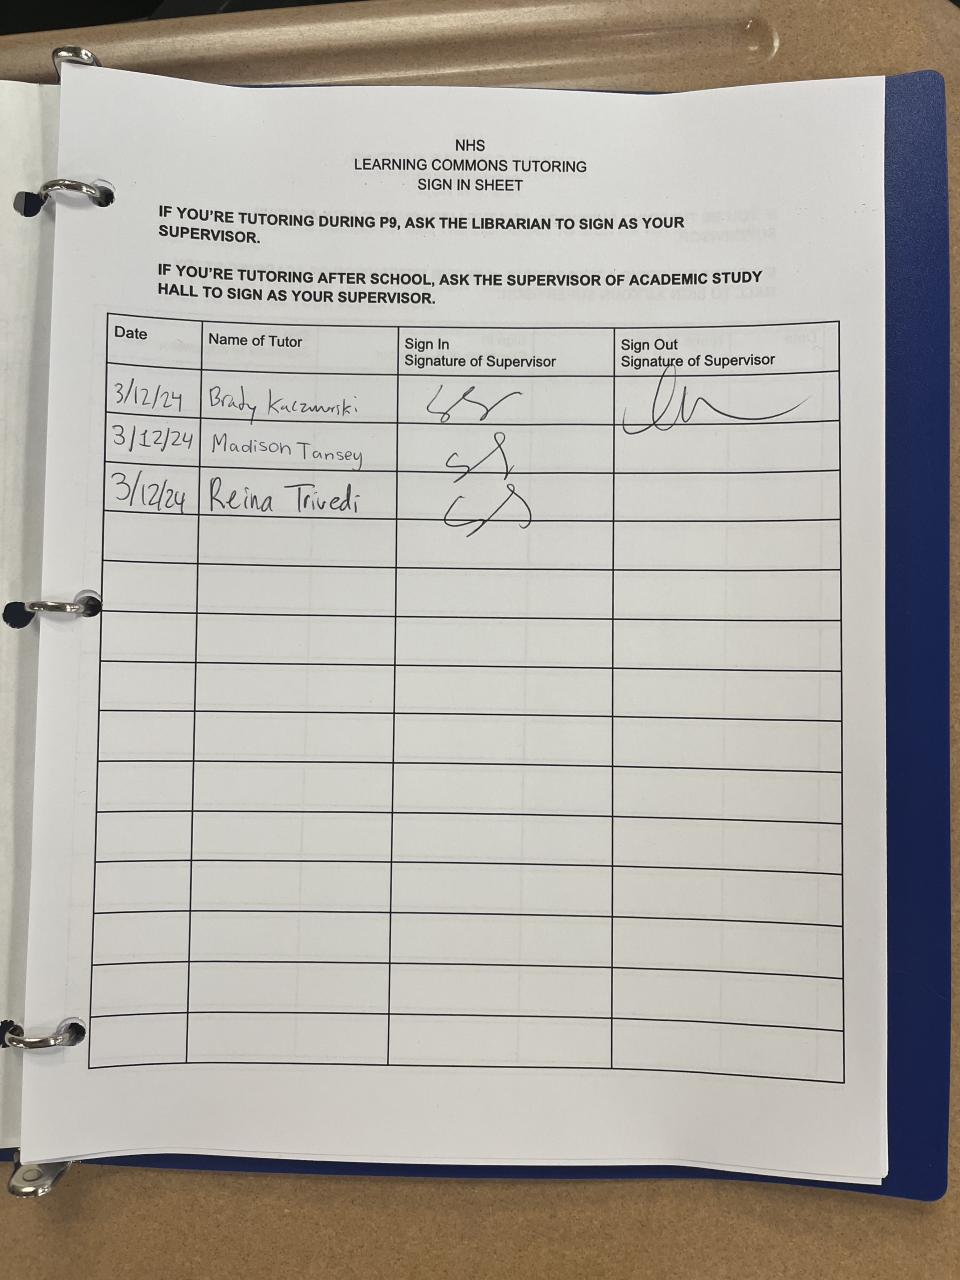 NHS
LEARNING COMMONS TUTORING
SIGN IN SHEET
IF YOU'RE TUTORING DURING P9, ASK THE LIBRARIAN TO SIGN AS YOUR
SUPERVISOR.
IF YOU'RE TUTORING AFTER SCHOOL, ASK THE SUPERVISOR OF ACADEMIC STUDY
HALL TO SIGN AS YOUR SUPERVISOR.
Date
Name of Tutor
Sign In
Signature of Supervisor
Sign Out
Signature of Supervisor
3/12/24 Brady
3/12/24 Madison Tansey
3/12/24 Reina Trivedi